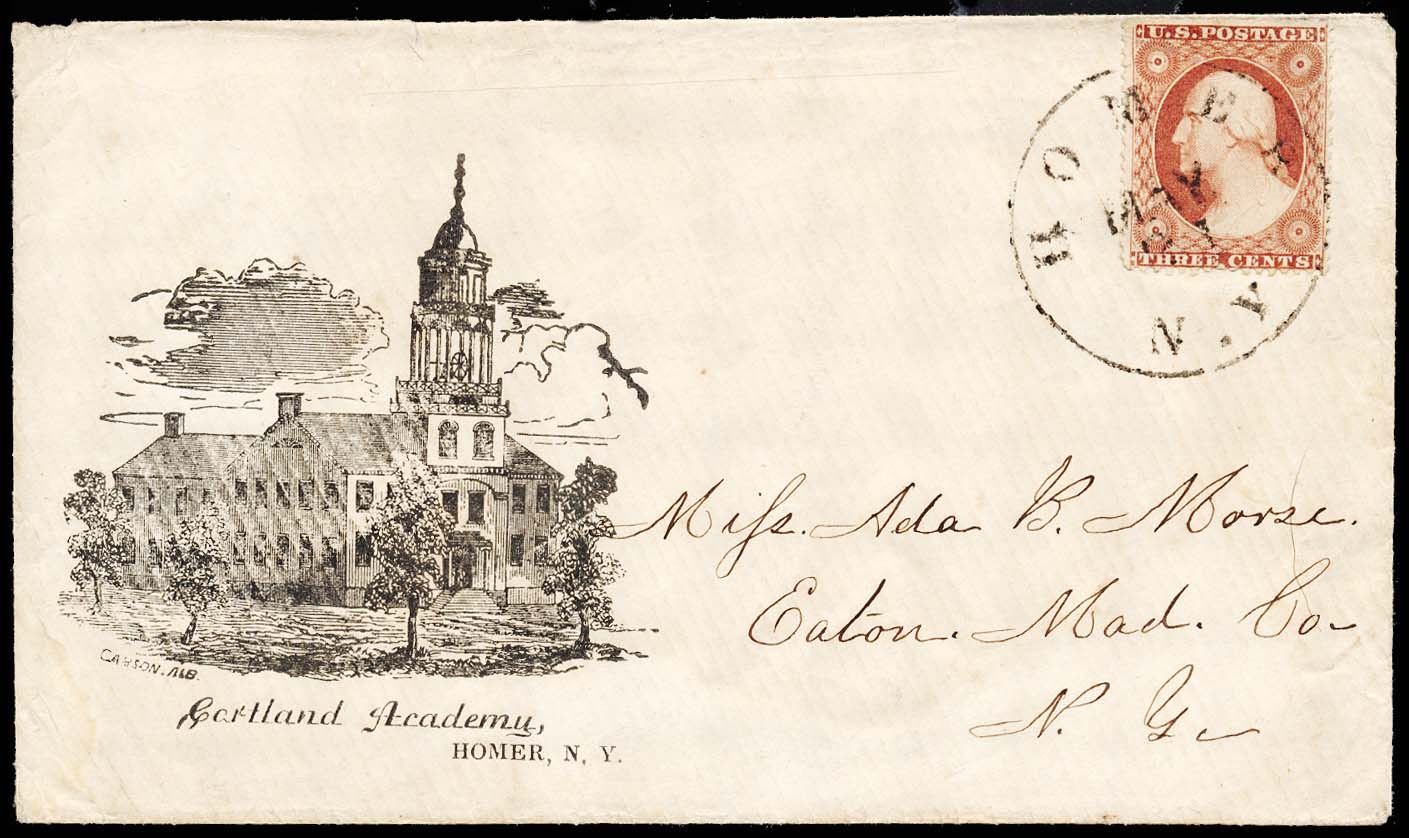 U.S. POSTAGE
THREE CENTS
HOMER
MAY
N.Y
Miſs. Ada B. Morse.
Eaton. Mad. Co
N. Y.
CARSON. ALB.
Cortland Academy,
HOMER, N. Y.